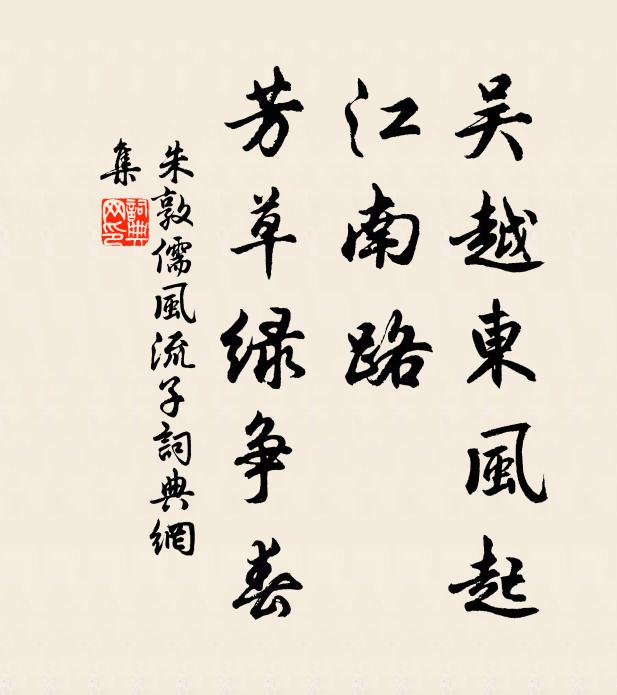 吴越東風起
江南路
芳草绿争春
朱敦儒風流子詞典網
集
詞典网印